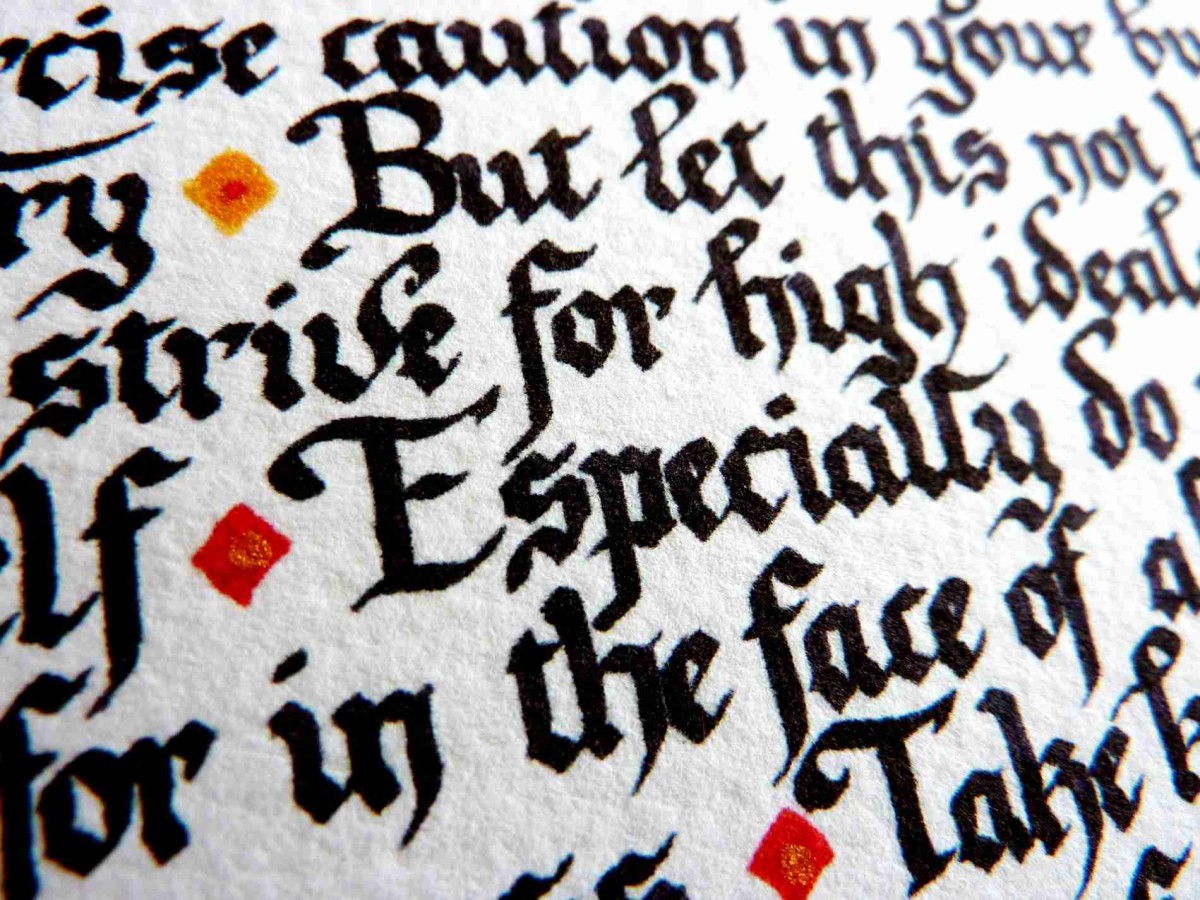 rcise caution in your bu
ry But let this not b
strive for high ideals
elf Especially do
for in the face of a
ss Take k